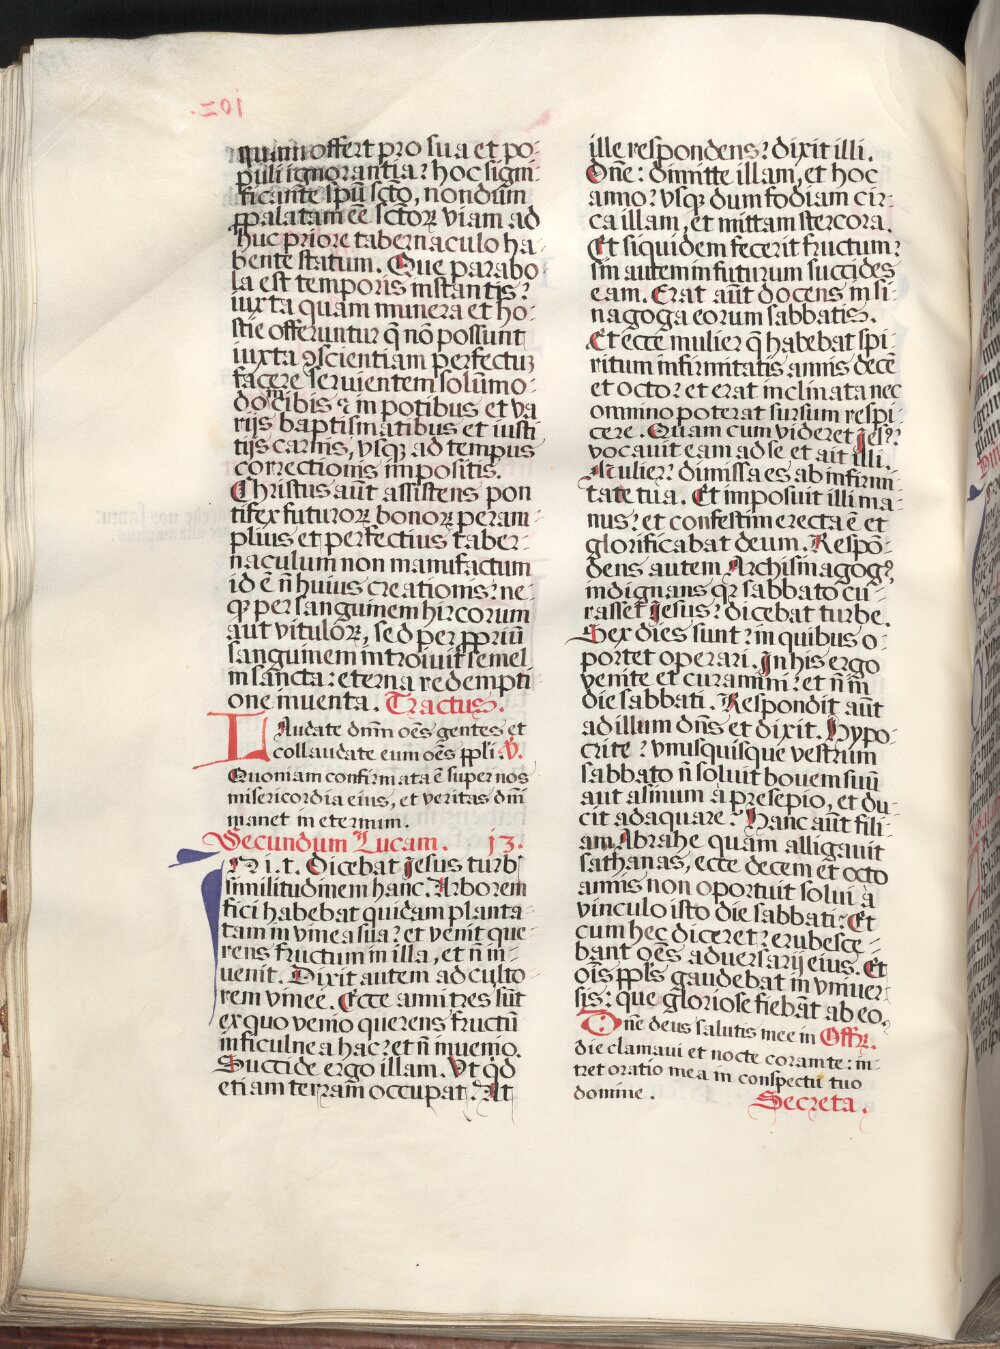 quam offert pro sua et po-
puli ignorantia? hoc signi-
ficante spū scto, nondum
ꝓpalatam eē sctoꝝ viam ad
huc priore tabernaculo ha-
bente statum. Que parabo
la est temporis instantis?
iuxta quam munera et ho-
stie offeruntur q̄ nō possunt
iuxta ꝯscientiam perfectuꝫ
facere seruientem solūmo-
do in cibis ⁊ in potibus et va
rijs baptismatibus et iusti
tijs carnis, vsqꝫ ad tempus
correctionis impositis.
Christus aūt assistens pon
tifex futuroꝝ bonoꝝ per am-
plius et perfectius taber-
naculum non manufactum
id ē n̄ huius creationis? ne
qꝫ per sanguinem hircorum
aut vituloꝝ, sed per ꝓpriū
sanguinem introiuit semel
in sancta: eterna redempti
one inuenta. Tractus.
LAudate dnm oēs gentes et
collaudate eum oēs ppli. V.
Quoniam confirmata ē super nos
misericordia eius, et veritas dnī
manet in eternum.
Secundum Lucam. 13.
IN i. t. Dicebat Jesus turb
similitudinem hanc. Arborem
fici habebat quidam planta-
tam in vinea sua? et venit que-
rens fructum in illa, et n̄ in-
uenit. Dixit autem ad culto-
rem vinee. Ecce anni tres sūt
ex quo venio querens fructū
in ficulnea hac? et n̄ inuenio.
Succide ergo illam. Vt qd
etiam terram occupat? At
ille respondens? dixit illi.
Dne: dimitte illam, et hoc
anno? vsqꝫ dum fodiam cir-
ca illam, et mittam stercora.
Et siquidem fecerit fructum?
sin autem in futurum succides
eam. Erat aūt docens in si-
nagoga eorum sabbatis.
Et ecce mulier q̄ habebat spi-
ritum infirmitatis annis decē
et octo? et erat inclinata nec
omnino poterat sursum respi-
cere. Quam cum videret Jesꝰ?
vocauit eam ad se et ait illi.
Mulier? dimissa es ab infirmi-
tate tua. Et imposuit illi ma-
nus? et confestim erecta ē et
glorificabat deum. Respō-
dens autem Archisinagogꝰ
indignans qꝛ sabbato cu-
rasset Jesus? dicebat turbe.
Sex dies sunt? in quibus o-
portet operari. In his ergo
venite et curamini? et n̄ in
die sabbati. Respondit aūt
ad illum dns et dixit. Hypo-
crite? vnusquisque vestrum
sabbato n̄ soluit bouem suū
aut asinum a presepio, et du-
cit adaquare? Hanc aūt fili-
am Abrahe quam alligauit
sathanas, ecce decem et octo
annis non oportuit solui a
vinculo isto die sabbati? Et
cum hec diceret? erubesce-
bant oēs aduersarij eius. Et
oīs ppls gaudebat in vniuer-
sis: que gloriose fiebāt ab eo.
Dne deus salutis mee in Offꝝ.
die clamaui et nocte coram te: in-
tret oratio mea in conspectu tuo
domine. Secreta.